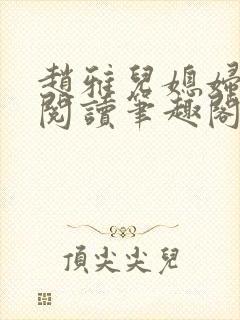 趙雅兒媳婦
閱讀筆趣閣
頂尖尖兒